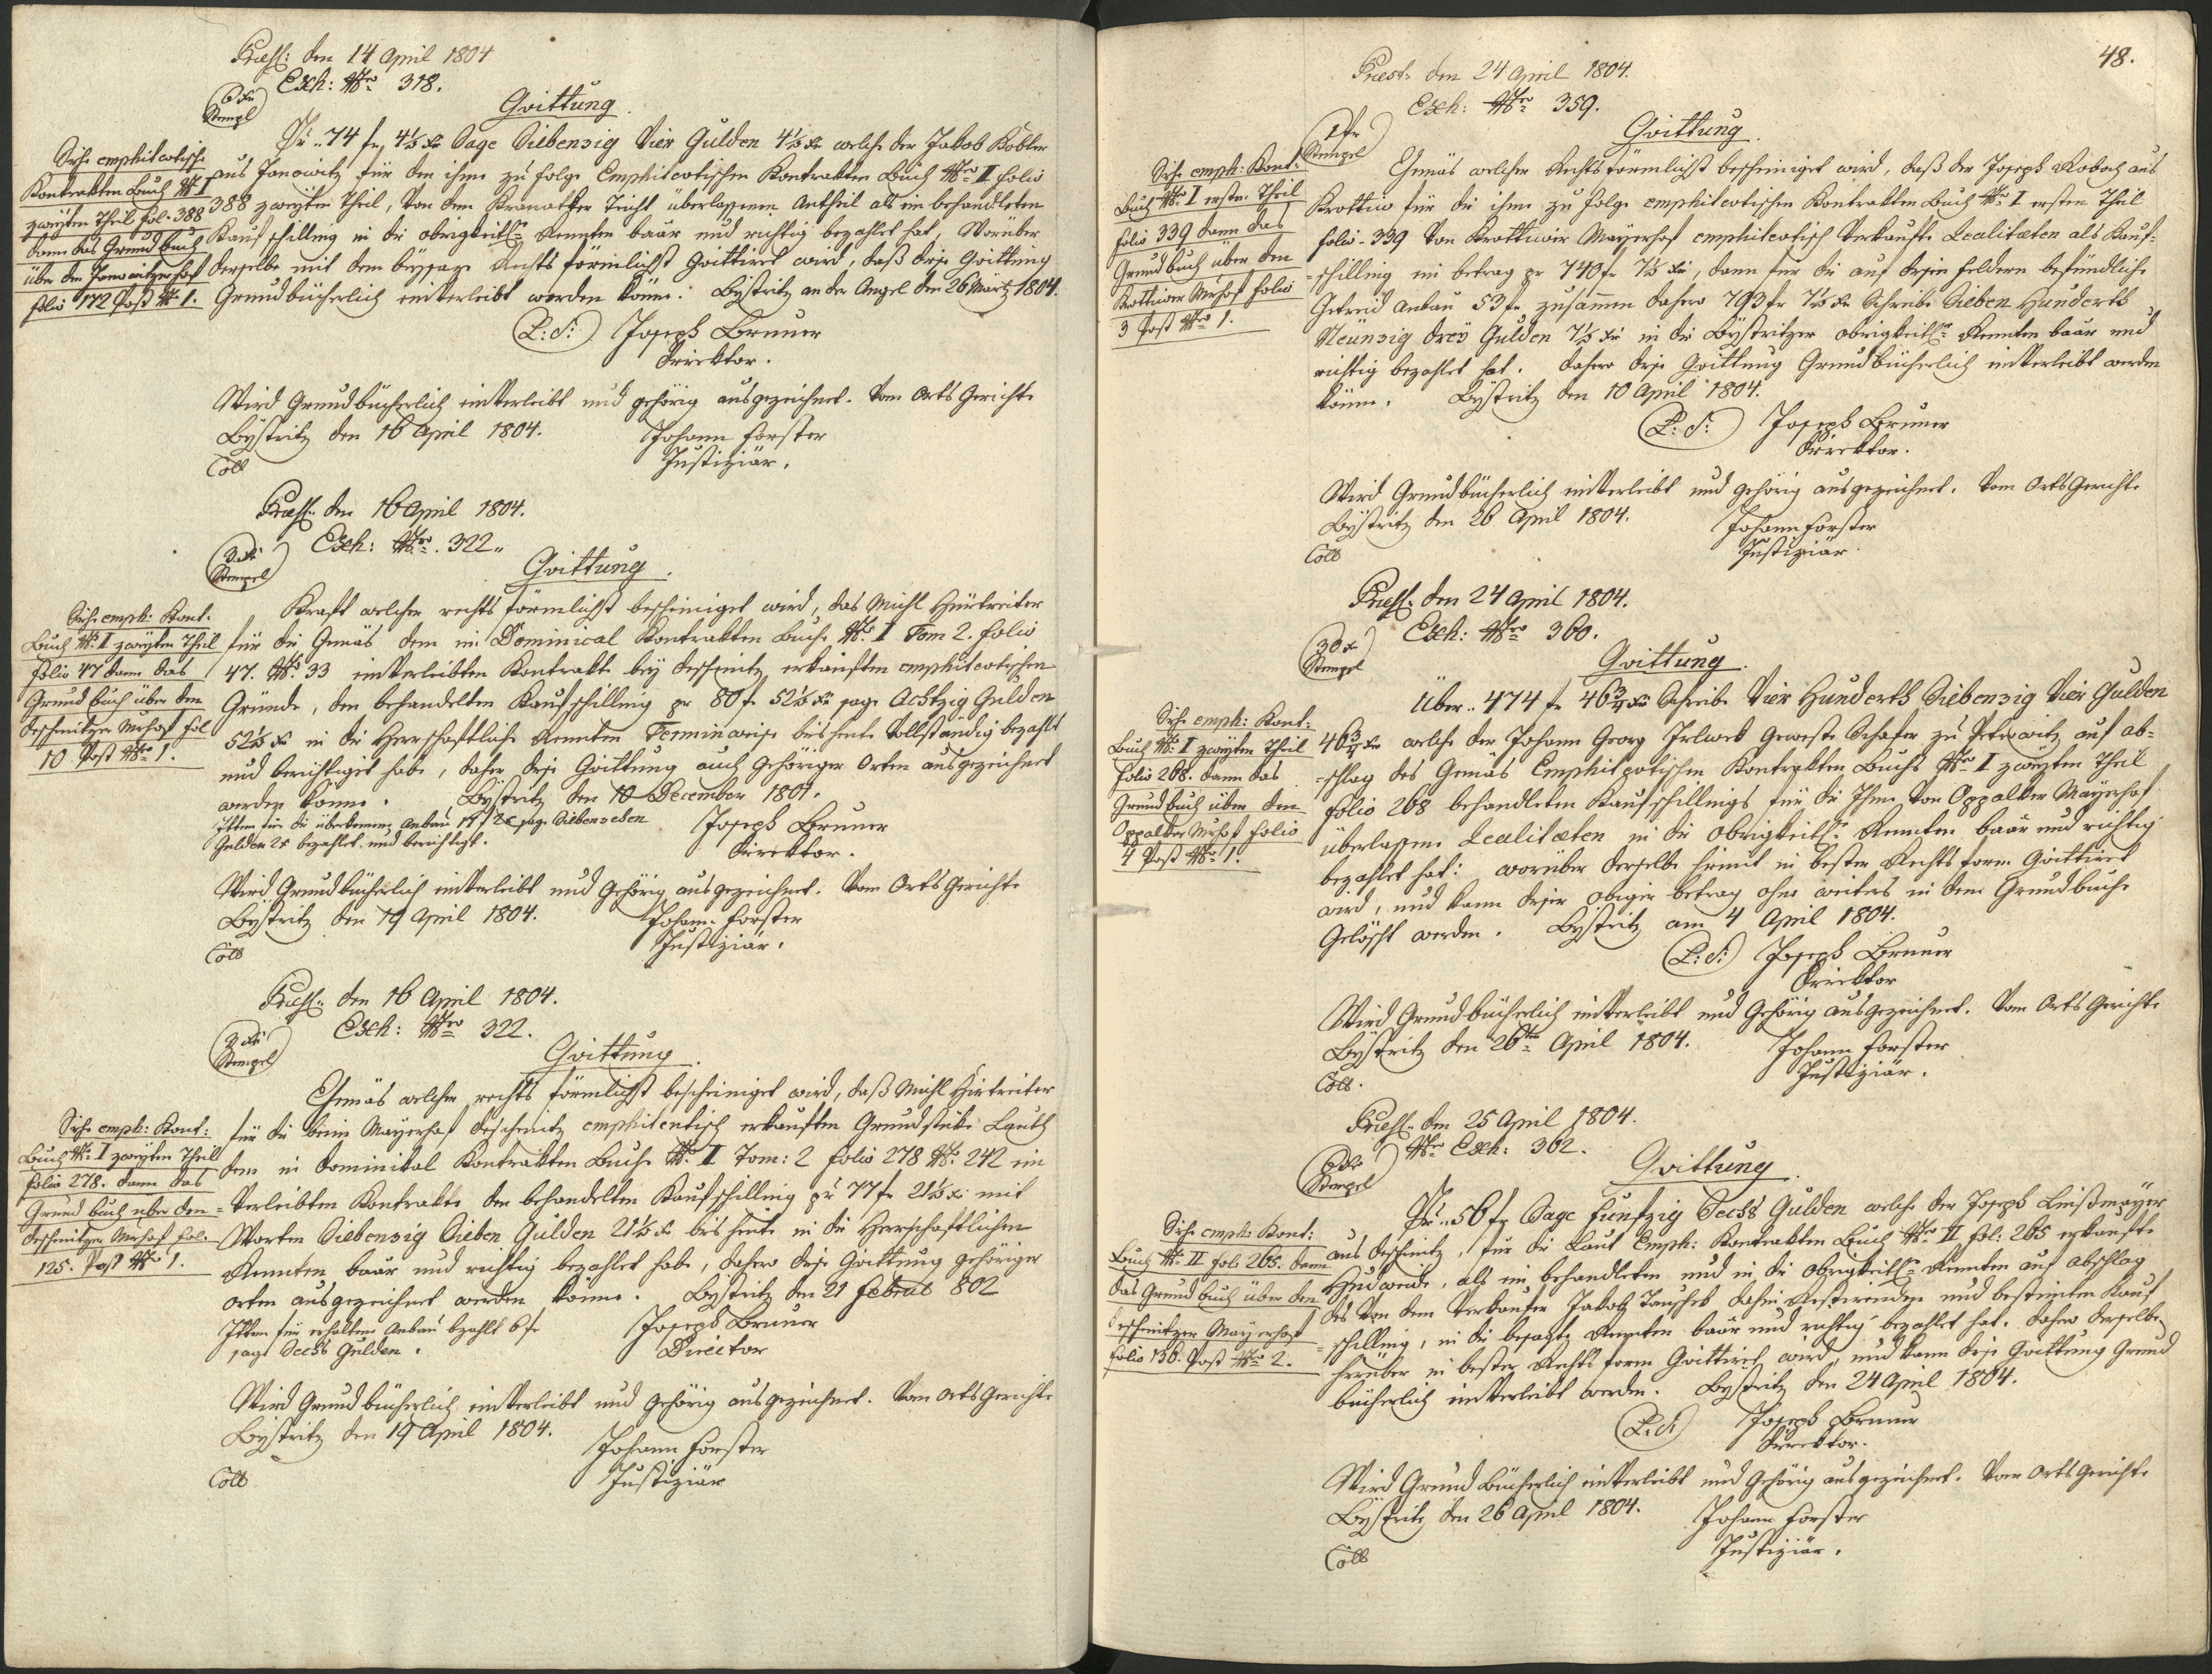 Præst: den 14 April 1804
Exh: Nro 318.
6 xr
Stempl
Quittung
Pr. 74 fr, 4½ xr Sage Siebenzig Vier Gulden 4½ xr welche der Jakob Kobler
aus Janowitz für den ihme zu folge Emphiteotischen Kontrakten Buch Nro II Folio
388 zweyten Theil, von dem Teicht überlassenen Antheil als im behandleten
Kauf schilling in die obrigkeitl. Rennten baar und richtig bezahlet hat, Worüber
derselbe mit dem beysaze Rechts förmlichst Quittiret wird, daß diese Quittung
Grundbücherlich einverleibt werden könne. Bystritz an der Angel den 26 Märtz 1804.
L: S: Joseph Bruner
Direktor.
Siehe emphiteotische
Kontrakten Buch Nr I
zweyten Theil fol. 388
dann das Grundbuch
über den Janowitzer hof
folio 172 Post Nr 1.
Wird Grundbücherlich einverleibt und gehörig ausgezeichnet. Vom Orts Gerichte
Bystritz den 16 April 1804. Johann Forster
Coll Justiziär.
Præst: den 16 April 1804.
Exh: Nro. 322.
3 xr
Stempel
Quittung.
Kraft welcher rechts förmlichst bescheiniget wird, das Michl Hürtreiter
für die Gemäs dem im Dominical Kontrakten Buche Nr. I Tom 2. Folio
47. Nr. 33 einverleibten Kontrakte bey Deschenitz erkauften emphiteotischen
Gründe, den behandelten Kaufschilling pr 80 fr 52½ xr sage Achtzig Gulden
52½ xr in die Herrschaftliche Rennten Terminweise bis heute Vollständig bezahlt
und berichtiget habe, daher diese Quittung auch gehöriger Orten ausgezeichnet
werden könne. Bystritz den 10 December 1801.
Itten für die überkomene Anbau 17 f 2 x sage Siebenzehen Joseph Bruner
Gulden 2 x bezahlet und berichtiget. Direktor.
Siehe emph: Kont:
Buch Nr. II zweyten Theil
Folio 47 dann das
Grund buch über den
Deschenitzer Mrhof fol
10 Post Nro 1.
Wird Grundbücherlich einverleibt und gehörig ausgezeichnet. Vom Orts Gerichte
Bystritz den 19 April 1804. Johann Forster
Coll Justiziär.
Præst: den 16 April 1804.
Exh: Nro 322.
3 xr
Stempel
Quittung.
Gemäs welcher rechts förmlichst bescheiniget wird, daß Michl Hirtreiter
für die beim Mayerhof Deschenitz emphiteutisch erkauften Grundstücke Lauth
dem in Dominikal Kontrakten Buche Nr. II Tom: 2 folio 278 Nr. 242 ein
verleibten Kontrakte den behandelten Kaufschilling pr 77 fr 21½ xr mit
Worten Siebenzig Sieben Gulden 21½ xr bis heute in die Herrschaftlichen
Rennten baar und richtig bezahlet habe, dahero diese Quittung gehöriger
orten ausgezeichnet werden könne. Bystritz den 21 Februar 802
Itten für erhaltene Anbau bezahlt 6 fr Joseph Bruner
sage Sechs Gulden. Director
Siehe emph: Kont:
Buch Nr. I zweyten Theil
folio 278. dann das
Grund buch über den
Deschenitzer Mrhof fol.
125. Post Nro 1.
Wird Grund bücherlich einverleibt und gehörig ausgezeichnet. Vom Orts Gerichte
Bystritz den 19 April 1804. Johann Forster
Coll Justiziär
48.
Præst: den 24 April 1804.
Exh: Nro 359.
1 fr
Stempel
Quittung
Gemäs welcher Rechts förmlichst bescheiniget wird, daß der Joseph aus
Krottiw für die ihme zu folge emphiteotischen Kontrakten Buch Nr. I ersten Theil
folio 339 von Krottiwer Mayerhof emphiteotisch Verkaufte Realitæten als Kauf-
-schilling im betrag pr 740 fr 7½ xr, dann für die auf diesen Feldern befindliche
Getreid Anbau 53 fr zusammen dahero 793 fr 7½ xr Schreibe Sieben Hunderth
Neünzig dreÿ Gulden 7½ xr in die Bystritzer obrigkeitl. Rennten baar und
richtig bezahlet hat. Dahero diese Quittung Grundbücherlich einverleibt werden
könne. Bystritz den 10 April 1804.
L: S: Joseph Bruner
Direktor.
Siehe emph: Kont:
Buch Nr. I erstn. Theil
folio 339 dann das
Grund buch über den
Krottiwer Mrhof folio
3 Post Nro 1.
Wird Grundbücherlich einverleibt und gehörig ausgezeichnet. Vom Orts Gerichte
Bystritz den 26 April 1804. Johann Forster
Coll Justiziär.
Præst: den 24 April 1804.
Exh: Nro 360.
30 x
Stempel
Quittung.
Über 474 fr 46¾ xr Schreibe Vier Hunderth Siebenzig Vier Gulden
46¾ xr welche der Johann Georg Geweste Schafer zu Petrowitz auf ab-
-schlag des Gemäs Emphiteotischen Kontrakten Buchs Nro I zweyten Theil
folio 268 behandleten Kaufschillings für die Ihme von Oppalker Mayerhof
überlassene Realitæten in die Obrigkeitl. Rennten baar und richtig
bezahlet hat: worüber derselbe hiemit in bester Rechts form Quittiret
wird, und kann dieser obiger betrag ohne weiters in dem Grundbuche
Gelöscht werden. Bystritz am 4 April 1804.
L: S: Joseph Bruner
Direktor
Siehe emph: Kont:
Buch Nr. I zweyten Theil
folio 268. dann das
Grundbuch über den
Oppalker Mrhof folio
4 Post Nro 1.
Wird Grundbücherlich einverleibt und Gehörig ausgezeichnet. Vom Orts Gerichte
Bystritz den 26ten April 1804. Johann Forster
Coll. Justiziär.
Præst: den 25 April 1804.
Nro Exh: 362.
6 xr
Stempel
Quittung.
Pr. 56 fr Sage Funfzig Sechs Gulden welche der Joseph
aus Deschenitz, für die Laut Emph: Kontrakten Buch Nro II fol: 265 erkaufte
Hudweide, als im behandleten und in die Obrigkeitl. Rennten auf abschlag
des von dem Verkaufer Jakob Taushek dahin und bestimten Kauf
-schilling, in die besagte Rennten baar und richtig bezahlet hat. Dahero derselbe
hierüber in bester Rechts form Quittiret wird, und kann diese Quittung Grund
bücherlich einverleibt werden. Bystritz den 24 April 1804.
L: S: Joseph Bruner
Direktor.
Siehe emph: Kont:
Buch Nr. II fol: 265. dann
das Grund buch über den
Deschenitzer Mayerhof
folio 136. Post Nro 2.
Wird Grund Bücherlich einverleibt und Gehörig ausgezeichnet. Vom Orts Gerichte
Bystritz den 26 April 1804. Johann Forster
Coll Justiziär.